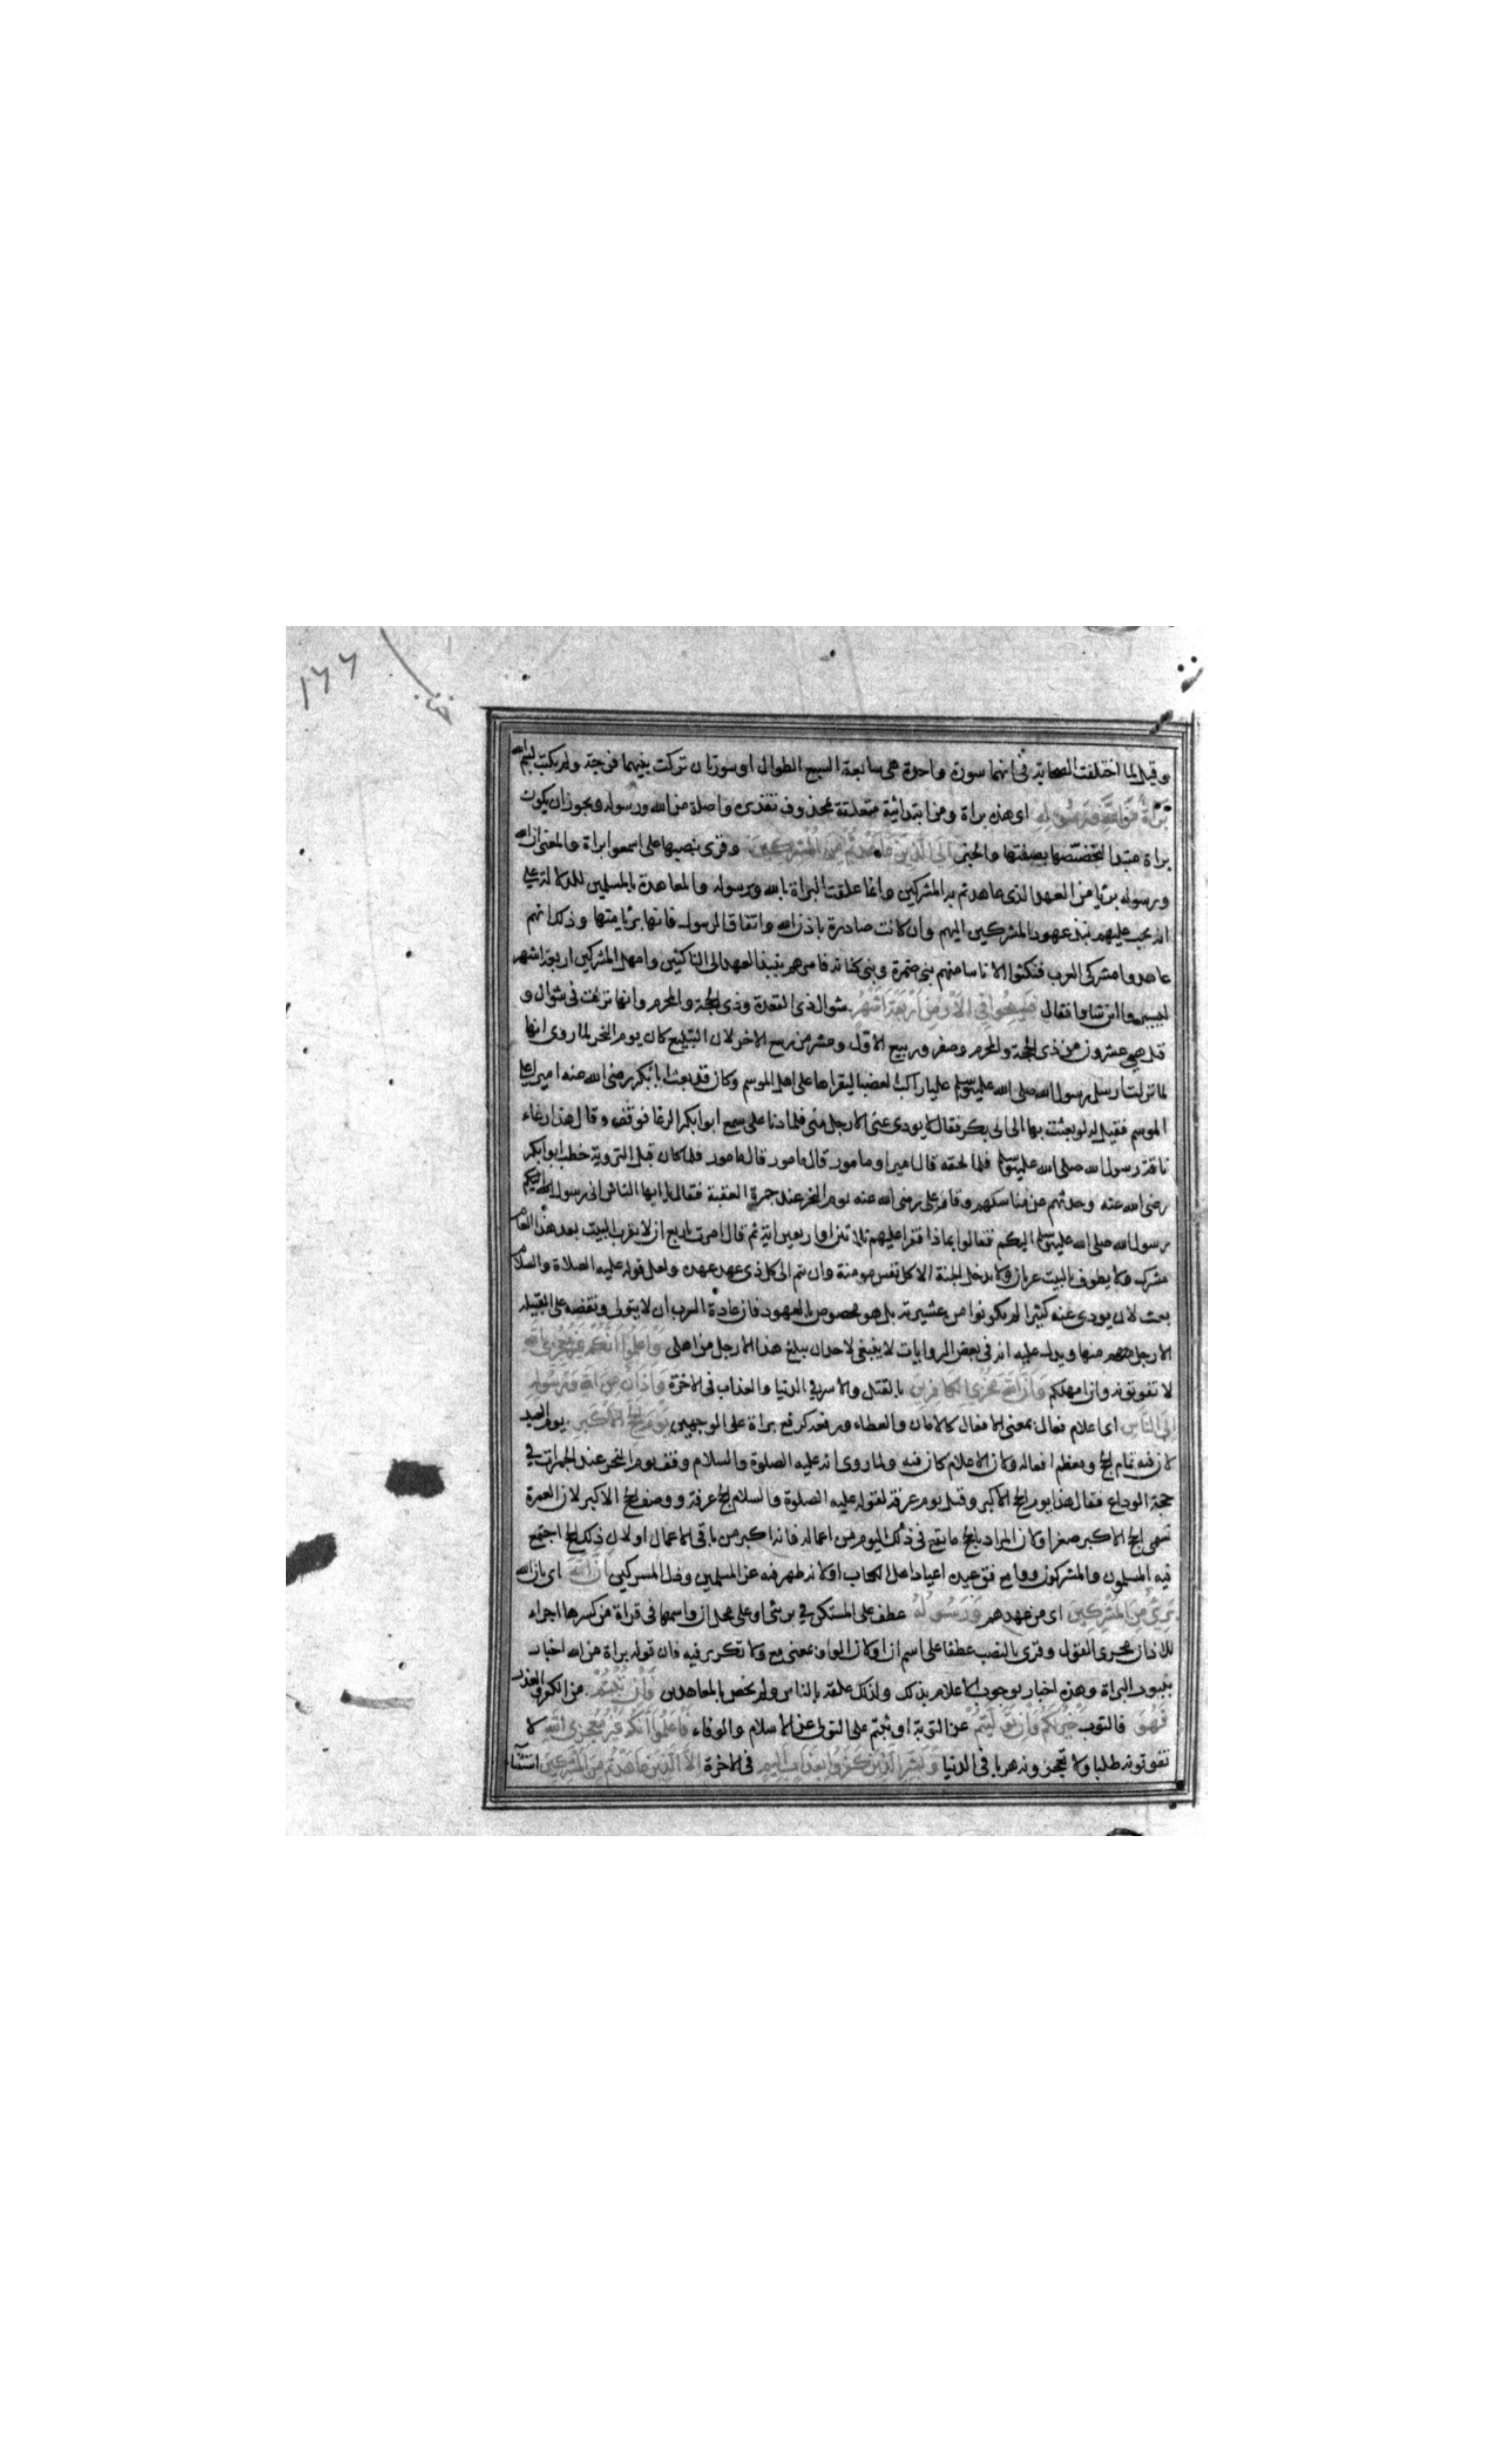 ١٦٦
وقيل لما اختلفت الصحابة في انهما سورة واحدة هي سابعة السبع الطوال او سورتان تركت بينهما فرجة ولم يكتب بسم الله
بَرَاةٌ مِّنَ اللّهِ وَرَسُولِهِ اى هذه براة ومن ابتدائية متعلقة بمحذوف تقديره واصلة من الله ورسوله ويجوز ان يكون
براة مبتدا لتخصصها بصفتها والخبر اِلَى الَّذِينَ عَاهَدْتُمْ مِنَ الْمُشْرِكِينَ وقرى بنصبها على اسمعوا براة والمعنى ان الله
ورسوله بريا من العهد الذى عاهدتم به المشركين وانما علقت البراة بالله ورسوله والمعاهدة بالمسلمين للدلالة على
انه يجب عليهم نبذ عهود المشركين اليهم وان كانت صادرة باذن الله واتفاق الرسول فانها بريا منها وذلك انهم
عاهدوا مشركى العرب فنكثوا الا ناسا منهم بنى ضمرة وبنى كنانة فامرهم بنبذ العهد الى الناكثين وامهل المشركين اربعة اشهر
ليسيروا اين شاوا فقال فَسِيحُوا فِي الْاَرْضِ اَرْبَعَةَ اَشْهُرٍ شوال ذى القعدة وذى الحجة والمحرم وانها نزلت في شوال و
قيل هي عشرون من ذى الحجة والمحرم وصفر وربيع الاول وعشر من ربيع الاخر لان التبليغ كان يوم النحر لما روى انها
لما نزلت ارسل رسول الله صلى الله عليه وسلم عليا راكب العضبا ليقراها على اهل الموسم وكان قد بعث ابا بكر رضى الله عنه اميرا على
الموسم فقيل له لو بعثت بها الى ابى بكر فقال لا يودى عنى الا رجل منى فلما دنا على سمع ابوا بكر الرغا فوقف وقال هذا رغاء
ناقة رسول الله صلى الله عليه وسلم فلما لحقه قال امير او مامور قال مامور قال مامور فلما كان قبل التروية خطب ابوا بكر
رضى الله عنه وحدثهم عن مناسكهم وقام على رضى الله عنه يوم النحر عند جمرة العقبة فقال يا ايها الناس انى رسول الله اليكم
رسول الله صلى الله عليه وسلم اليكم فقالوا بماذا فقرا عليهم ثلاثين او اربعين اية ثم قال امرت باربع ان لا يقرب البيت بعد هذا العام
مشرك ولا يطوف بالبيت عريان ولا يدخل الجنة الا كل نفس مومنة وان يتم الى كل ذى عهد عهده ولعل قوله عليه الصلاة والسلام
بعث لان يودى عنه كثيرا لم يكونوا من عشيرته بل هو مخصوص بالعهود فان عادة العرب ان لا يتولى ونقضه على القبيلة
الا رجل منها ويدل عليه انه في بعض الروايات لا ينبغى لاحد ان يبلغ هذا الا رجل من اهلى وَاعْلَمُوا اَنَّكُمْ غَيْرُ مُعْجِزِى اللّهِ
لا تفوتونه وان امهلكم وَاَنَّ اللّهَ مُخْزِى الْكَافِرِينَ بالقتل والاسر في الدنيا والعذاب في الاخرة وَاَذَانٌ مِنَ اللّهِ وَرَسُولِهِ
اِلَى النَّاسِ اى اعلام فعال بمعنى الافعال كالامان والعطاء ورفعه كرفع براة على الوجهين يَوْمَ الْحَجِّ الْاَكْبَرِ يوم العيد
لان فيه تمام الحج ومعظم افعاله ولان الاعلام كان فيه ولما روى انه عليه الصلوة والسلام وقف يوم النحر عند الجمرات في
حجة الوداع فقال هذا يوم الحج الاكبر وقيل يوم عرفة لقوله عليه الصلوة والسلام الحج عرفة ووصف الحج الاكبر لان العمرة
تسمى الحج الاكبر صغر او لان المراد بالحج ما يقع في ذلك اليوم من اعماله فانه اكبر من باقى الاعمال او لان ذلك الحج اجتمع
فيه المسلمون والمشركون ووافق عيده اعياد اهل الكتاب او لانه ظهر فيه عز المسلمين وذل المشركين اَنَّ اللّهَ اى بان الله
بَرِىٌ مِنَ الْمُشْرِكِينَ اى من عهدهم وَرَسُولُهُ عطف على المستكن في برئ او على محل ان واسمها في قراة من كسرها اجراء
للاذان مجرى القول وقرى بالنصب عطفا على اسم ان او لان الواو بمعنى مع ولا تكرير فيه فان قوله براة من الله اخبار
بثبوت البراة وهذه اخبار بوجوب الاعلام بذلك ولذلك علقه بالناس ولم يخص بالمعاهدين فَاِنْ تُبْتُمْ من الكفر والغدر
فَهُوَ فالتوب خَيْرٌ لَكُمْ وَاِنْ تَوَلَّيْتُمْ عن التوبة او ثبتم على التولى عن الاسلام والوفاء فَاعْلَمُوا اَنَّكُمْ غَيْرُ مُعْجِزِى اللّهِ لا
تفوتونه طلبا ولا تعجزونه هربا في الدنيا وَبَشِّرِ الَّذِينَ كَفَرُوا بِعَذَابٍ اَلِيمٍ في الاخرة اِلَّا الَّذِينَ عَاهَدْتُمْ مِنَ الْمُشْرِكِينَ استثناء